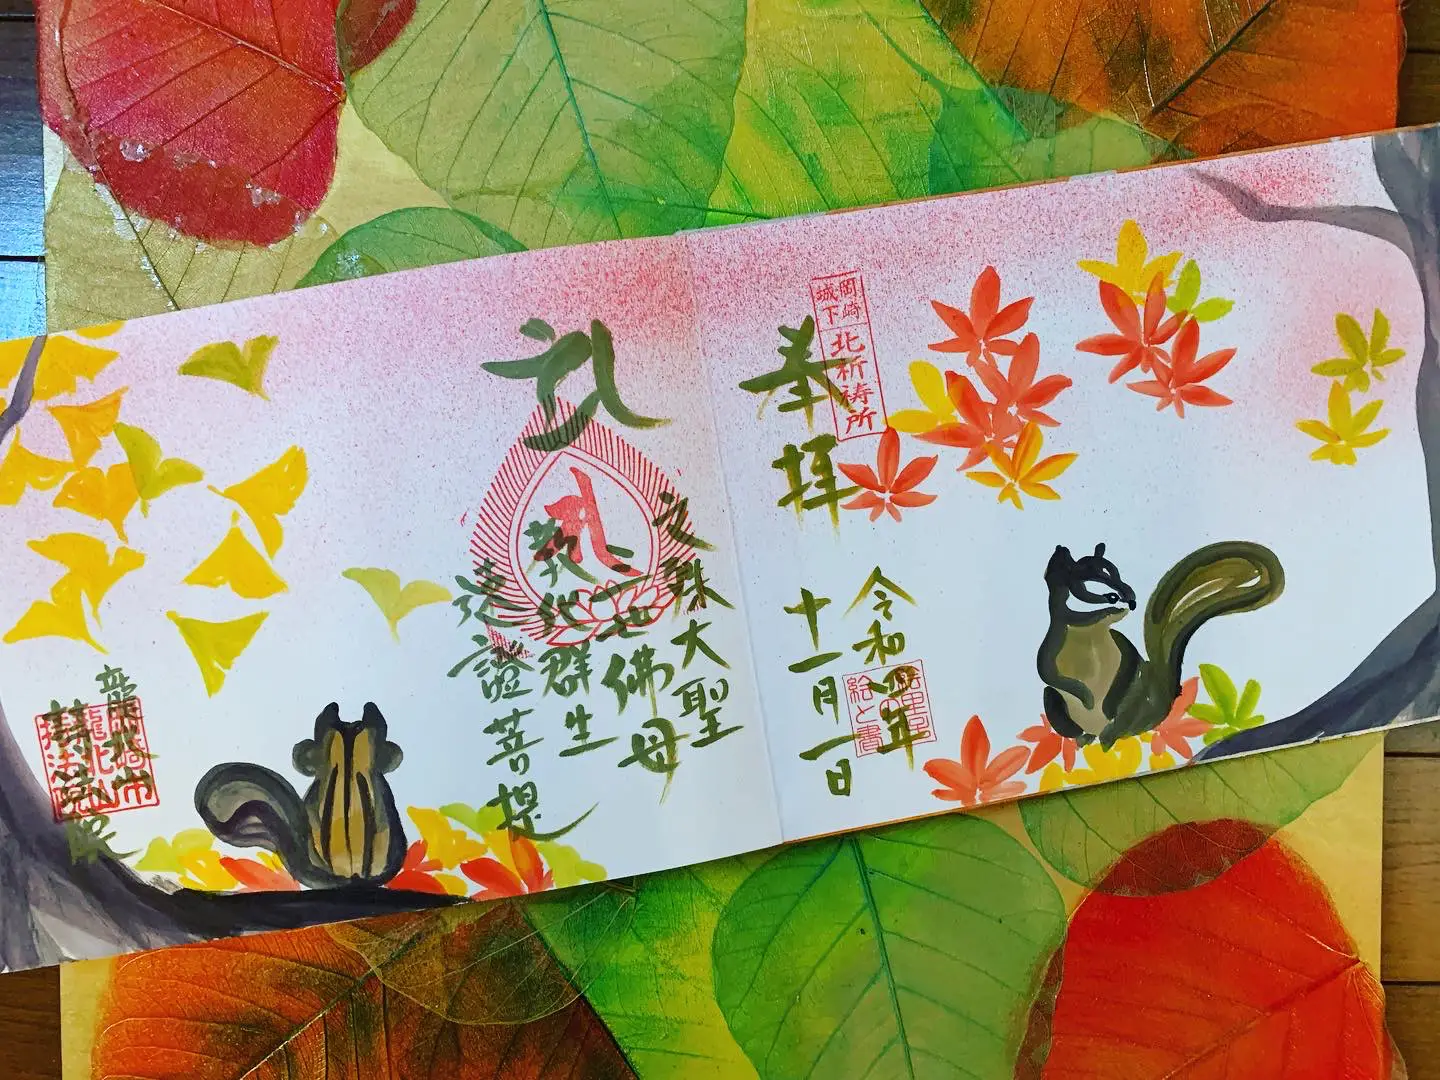 岡崎
城下
北祈祷所
奉拝
令和四年
十一月一日
絵と書
文殊大聖
三世佛母
教化群生
速證菩提
龍北山
持法院